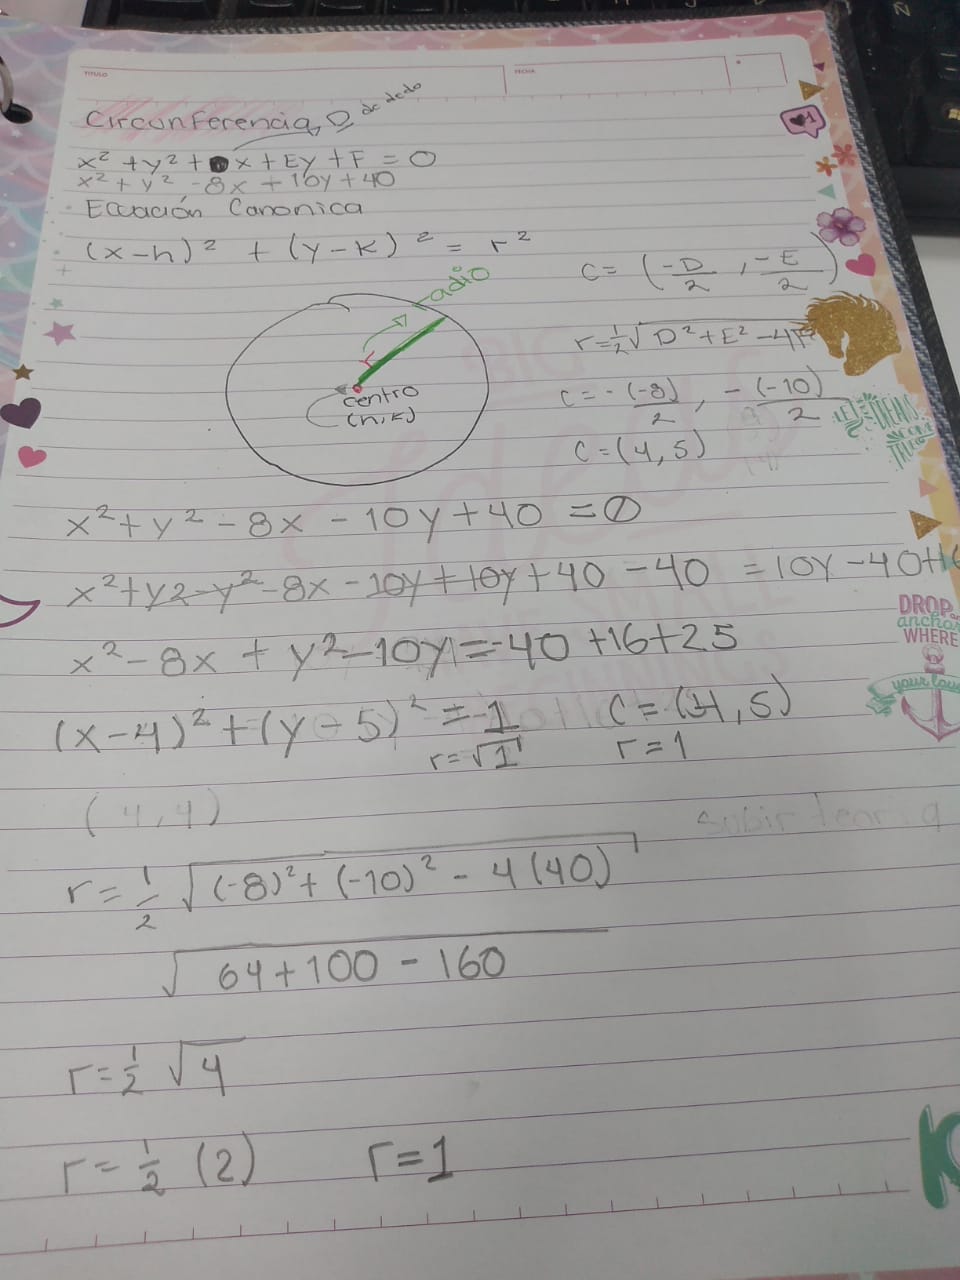 TITULO
FECHA
Circunferencia, D de dedo
x² + y² + x + Ey + F = 0
x² + y² - 8x + 10y + 40
Ecuación Canonica
(x-h)² + (y-k)² = r²
radio
r
centro
(h,k)
C = (-D/2, -E/2)
r = 1/2 √D² + E² - 4F
C = -(-8)/2, -(-10)/2
C = (4,5)
x² + y² - 8x - 10y + 40 = 0
x² + y2 - y² - 8x - 10y + 10y + 40 - 40 = 10y - 40 + 16
x² - 8x + y² - 10y = -40 + 16 + 25
(x-4)² + (y-5)² = 1
r = √1
C = (4,5)
r = 1
(4,4)
subir
r = 1/2 √(-8)² + (-10)² - 4(40)
√64 + 100 - 160
r = 1/2 √4
r = 1/2 (2) r = 1
BIG
Ideas
SMALL
BEGINNINGS
DROP
anchor
WHERE
your love
K